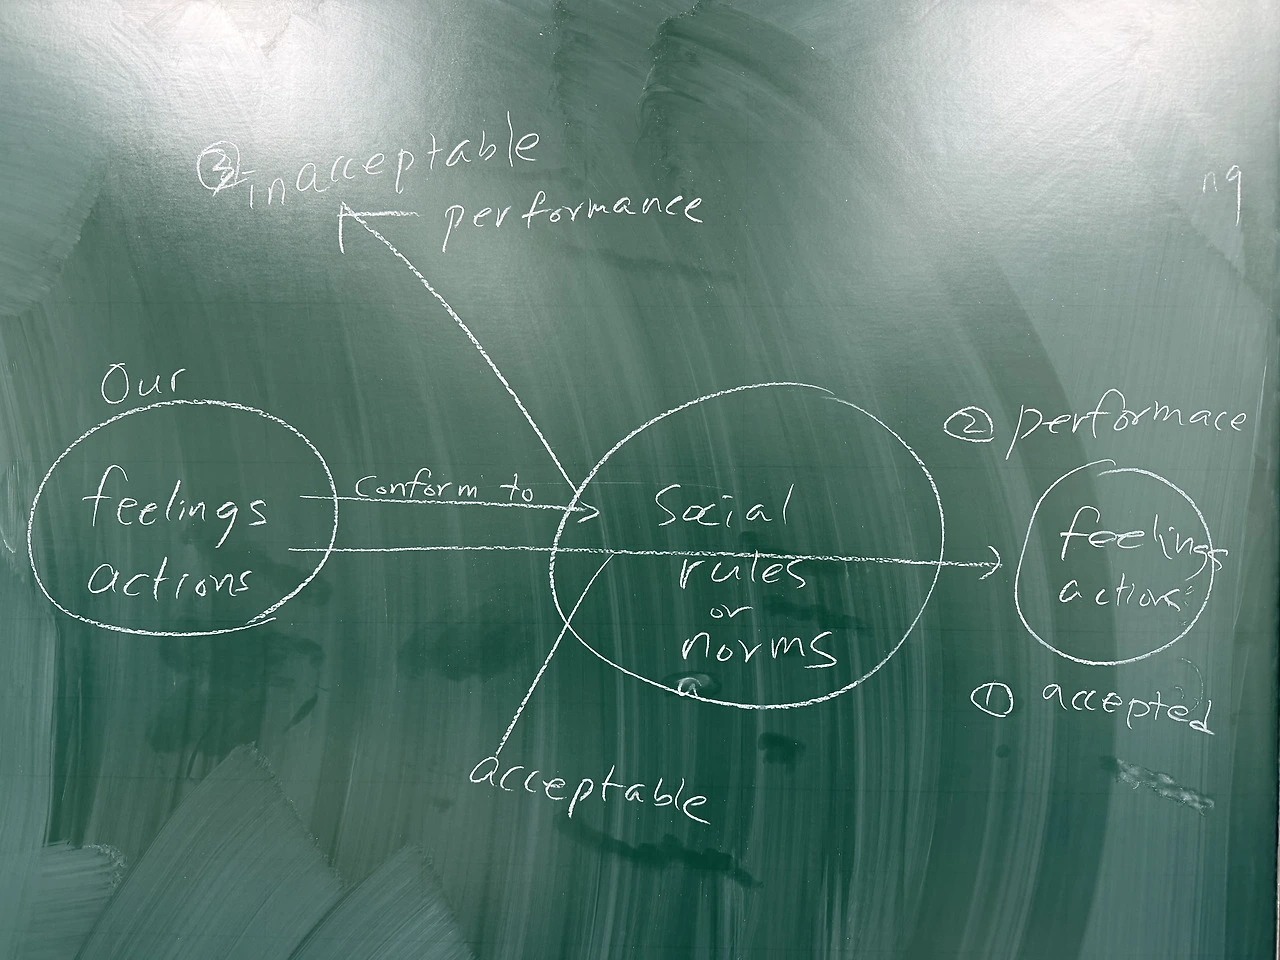 ③ inacceptable
performance
ng
Our
feelings
actions
Conform to
Social
rules
or
norms
acceptable
② performace
feelings
actions
① accepted